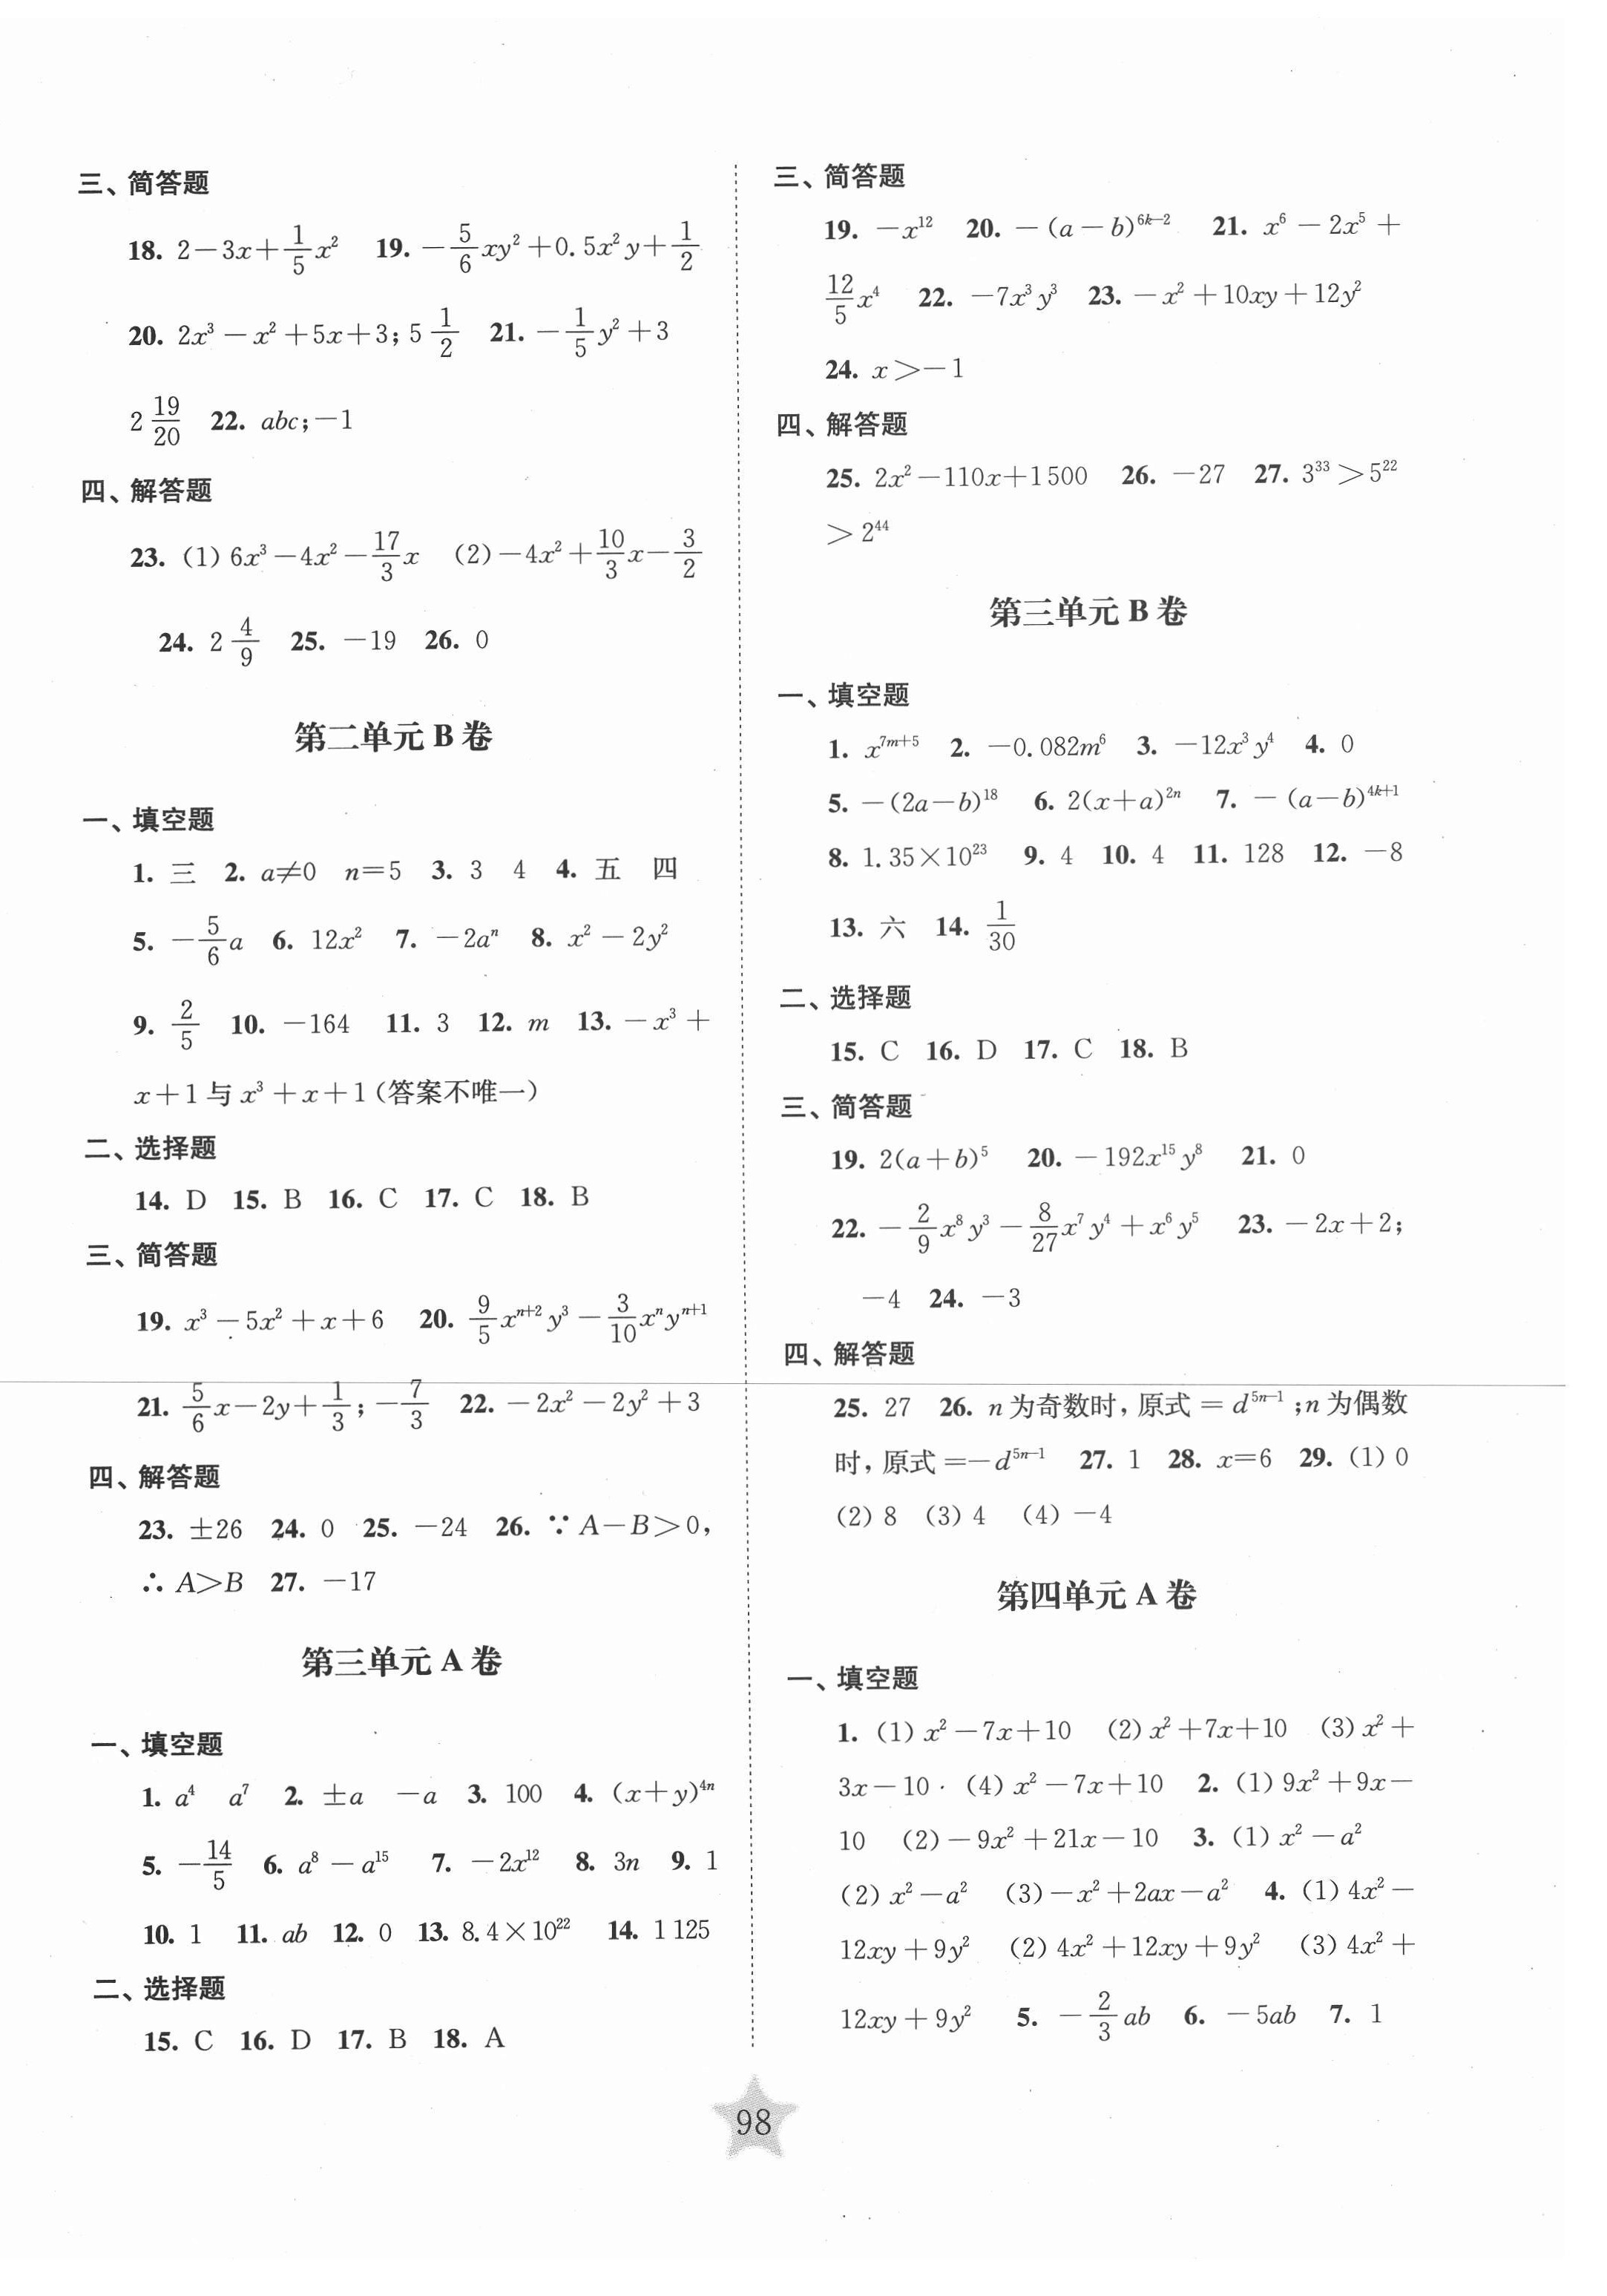 三、简答题
18. 2－3x＋1/5x²  19. －5/6xy²＋0.5x²y＋1/2
20. 2x³－x²＋5x＋3；5 1/2  21. －1/5y²＋3
2 19/20  22. abc；－1
四、解答题
23. (1) 6x³－4x²－17/3x  (2)－4x²＋10/3x－3/2
24. 2 4/9  25. －19  26. 0
第二单元 B 卷
一、填空题
1. 三  2. a≠0  n＝5  3. 3  4  4. 五  四
5. －5/6a  6. 12x²  7. －2aⁿ  8. x²－2y²
9. 2/5  10. －164  11. 3  12. m  13. －x³＋
x＋1 与 x³＋x＋1（答案不唯一）
二、选择题
14. D  15. B  16. C  17. C  18. B
三、简答题
19. x³－5x²＋x＋6  20. 9/5xⁿ⁺²y³－3/10xⁿyⁿ⁺¹
21. 5/6x－2y＋1/3；－7/3  22. －2x²－2y²＋3
四、解答题
23. ±26  24. 0  25. －24  26. ∵ A－B＞0，
∴ A＞B  27. －17
第三单元 A 卷
一、填空题
1. a⁴  a⁷  2. ±a  －a  3. 100  4. (x＋y)⁴ⁿ
5. －14/5  6. a⁸－a¹⁵  7. －2x¹²  8. 3n  9. 1
10. 1  11. ab  12. 0  13. 8.4×10²²  14. 1 125
二、选择题
15. C  16. D  17. B  18. A
三、简答题
19. －x¹²  20. －(a－b)^(6k－2)  21. x⁶－2x⁵＋
12/5x⁴  22. －7x³y³  23. －x²＋10xy＋12y²
24. x＞－1
四、解答题
25. 2x²－110x＋1 500  26. －27  27. 3³³＞5²²
＞2⁴⁴
第三单元 B 卷
一、填空题
1. x^(7m＋5)  2. －0.082m⁶  3. －12x³y⁴  4. 0
5. －(2a－b)¹⁸  6. 2(x＋a)²ⁿ  7. －(a－b)^(4k＋1)
8. 1.35×10²³  9. 4  10. 4  11. 128  12. －8
13. 六  14. 1/30
二、选择题
15. C  16. D  17. C  18. B
三、简答题
19. 2(a＋b)⁵  20. －192x¹⁵y⁸  21. 0
22. －2/9x⁸y³－8/27x⁷y⁴＋x⁶y⁵  23. －2x＋2；
－4  24. －3
四、解答题
25. 27  26. n 为奇数时，原式＝d⁵ⁿ⁻¹；n 为偶数
时，原式＝－d⁵ⁿ⁻¹  27. 1  28. x＝6  29. (1) 0
(2) 8  (3) 4  (4) －4
第四单元 A 卷
一、填空题
1. (1) x²－7x＋10  (2) x²＋7x＋10  (3) x²＋
3x－10  (4) x²－7x＋10  2. (1) 9x²＋9x－
10  (2)－9x²＋21x－10  3. (1) x²－a²
(2) x²－a²  (3)－x²＋2ax－a²  4. (1) 4x²－
12xy＋9y²  (2) 4x²＋12xy＋9y²  (3) 4x²＋
12xy＋9y²  5. －2/3ab  6. －5ab  7. 1
98